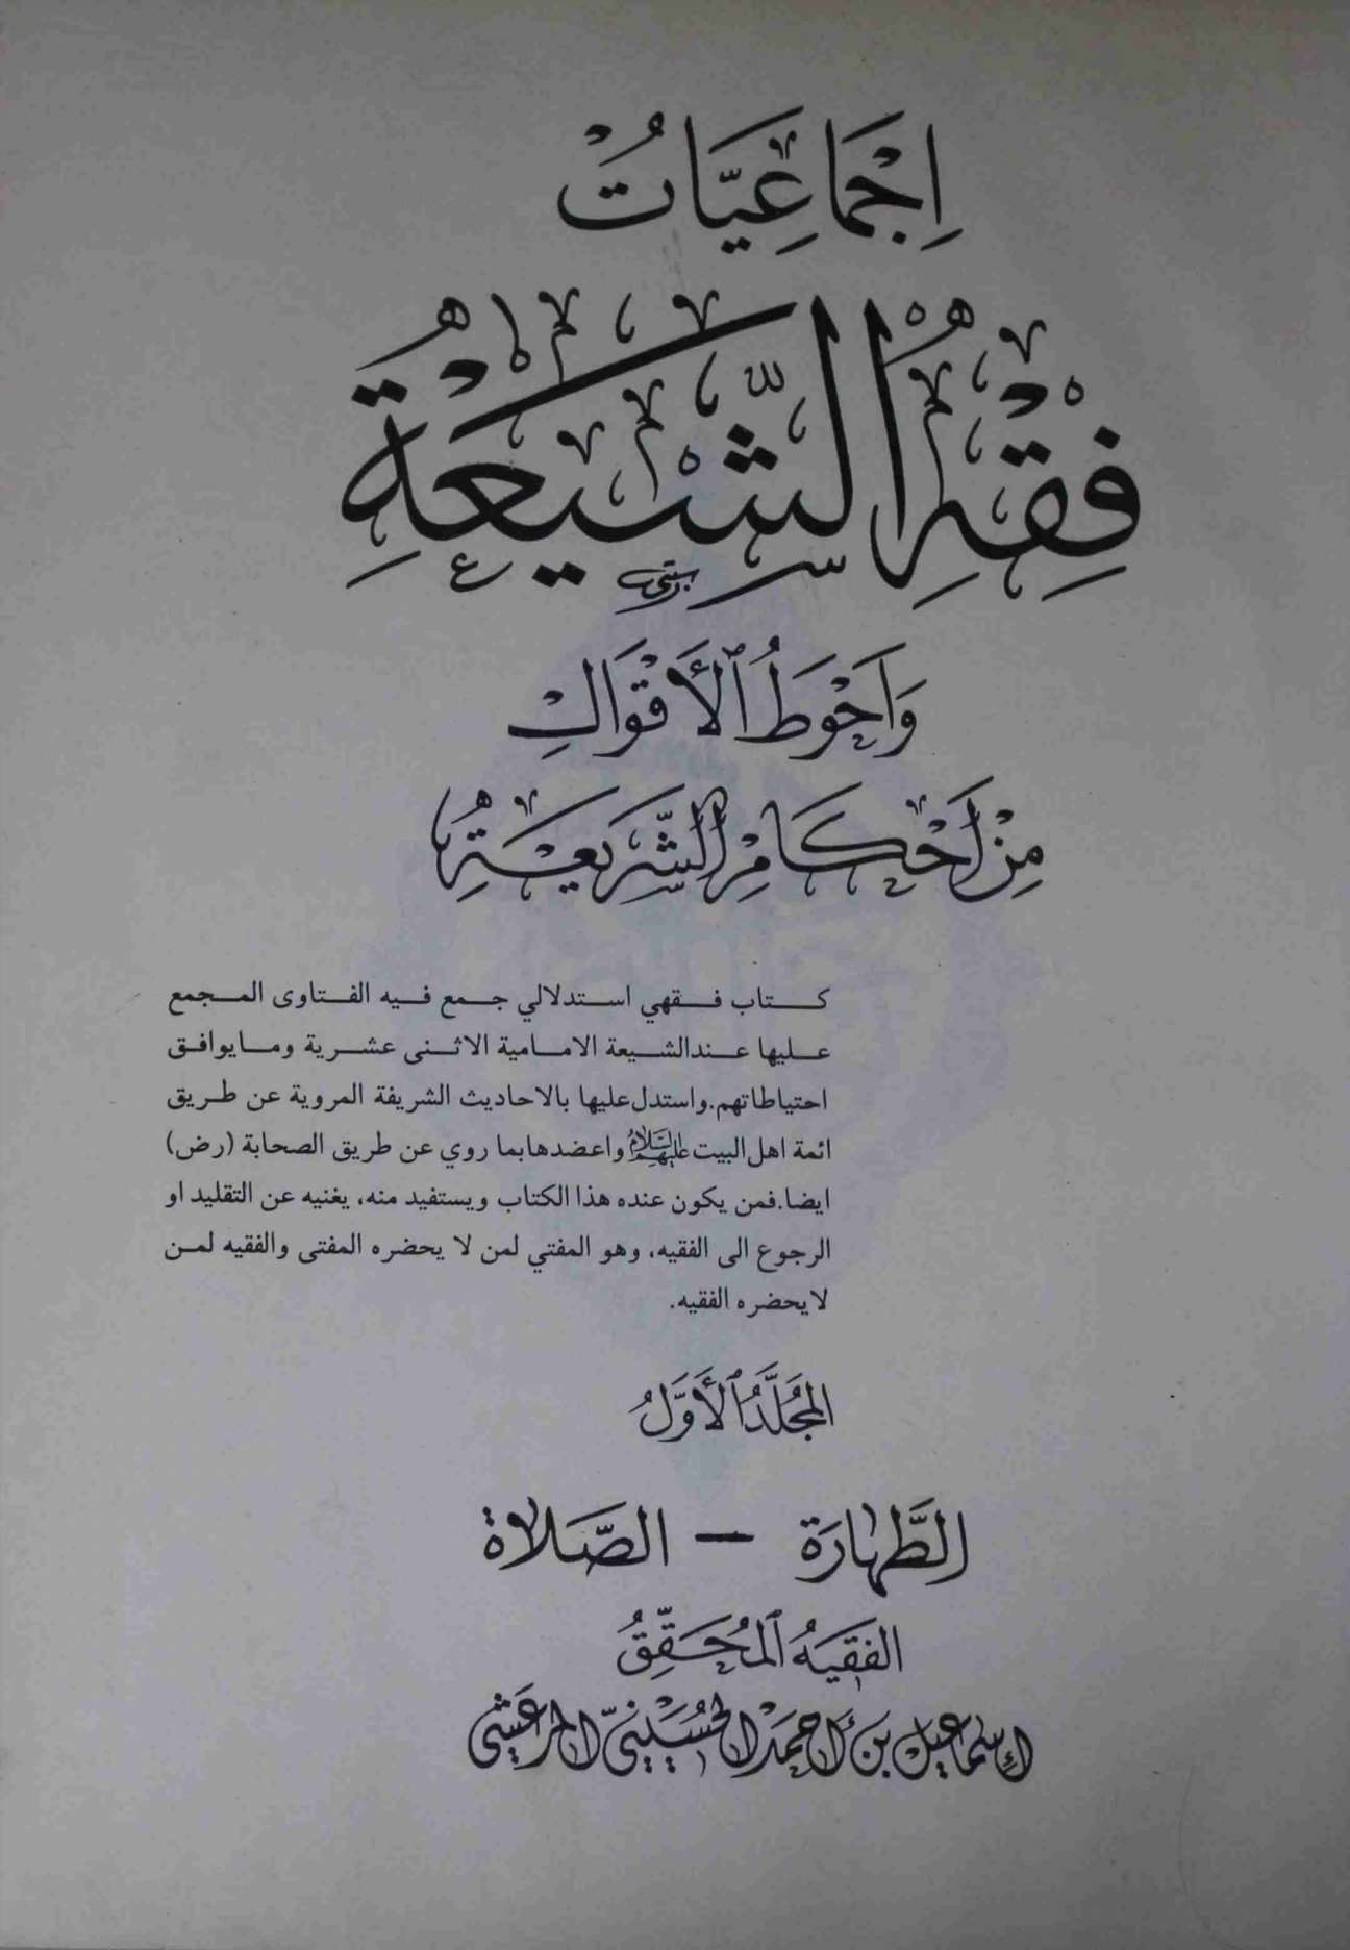 اِجْمَاعِيَّاتُ
فِقْهِ الشِّيعَةِ
وَاَحْوَطُ ٱلْأَقْوَالِ
مِنْ اَحْكَامِ الشَّرِيعَةِ
كتاب فقهي استدلالي جمع فيه الفتاوى المجمع
عليها عندالشيعة الامامية الاثنى عشرية ومايوافق
احتياطاتهم.واستدل عليها بالاحاديث الشريفة المروية عن طريق
ائمة اهل البيت عليهم السلام واعضدها بما روي عن طريق الصحابة (رض)
ايضا.فمن يكون عنده هذا الكتاب ويستفيد منه، يغنيه عن التقليد او
الرجوع الى الفقيه، وهو المفتي لمن لا يحضره المفتى والفقيه لمن
لايحضره الفقيه.
المُجَلَّدُ ٱلْأَوَّلُ
الطَّهَارَة – الصَّلَاة
الفَقِيهُ ٱلْمُحَقِّقُ
إِسْمَاعِيل بْن أَحْمَدْ الحُسَيْنِيّ المَرْعَشِي